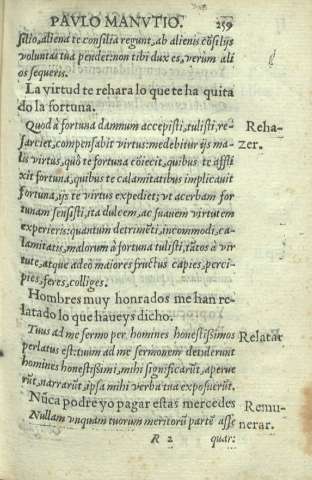 PAVLO MANVTIO. 259
silio, aliena te consilia regunt, ab alienis cōsilijs
voluntas tua pendet: non tibi dux es, verùm ali
os sequeris.
La virtud te rehara lo que te ha quita
do la fortuna.
Quod à fortuna damnum accepisti, tulisti, re-
sarciet, compensabit virtus: medebitur ijs ma-
lis virtus, quò te fortuna cōiecit, quibus te afflí
xit fortuna, quibus te calamitatibus implicauit
fortuna, ijs te virtus expediet; vt acerbam for
tunam sensisti, ita dulcem, ac suauem virtutem
experieris: quantum detrimēti, incommodi, ca-
lamitatis, malorum à fortuna tulisti, tātos à vir
tute, atque adeò maiores fructus capies, perci-
pies, feres, colliges.
Reha-
zer.
Hombres muy honrados me han re-
latado lo que haueys dicho.
Tuus ad me sermo per homines honestissimos
perlatus est: tuum ad me sermonem detulerunt
homines honestissimi, mihi significarūt, aperue
rūt, narrarūt, ipsa mihi verba tua exposuerūt.
Relatar
Nūca podre yo pagar estas mercedes
Nullam vnquam tuorum meritorū partē asse
Remu-
nerar.
R 2 quar: